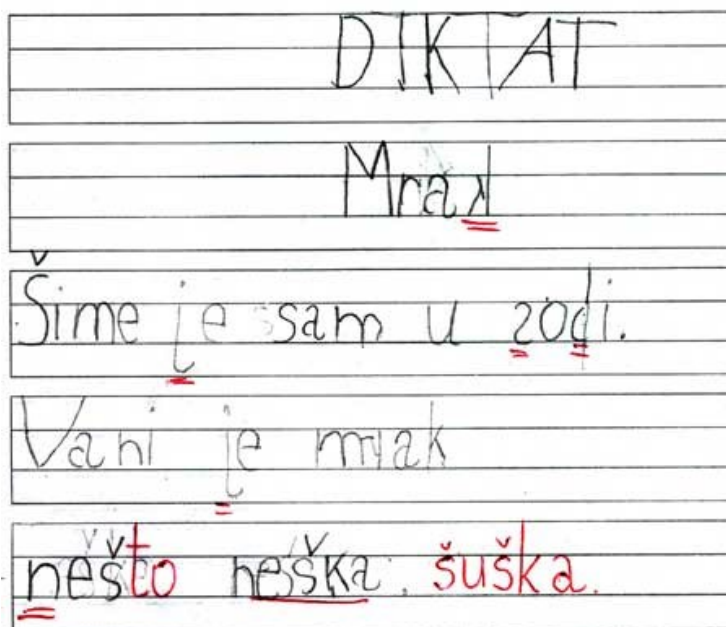 DIKTAT
Mrak
Šime je sam u sodi.
Vani je mrak
nešto neška. šuška.